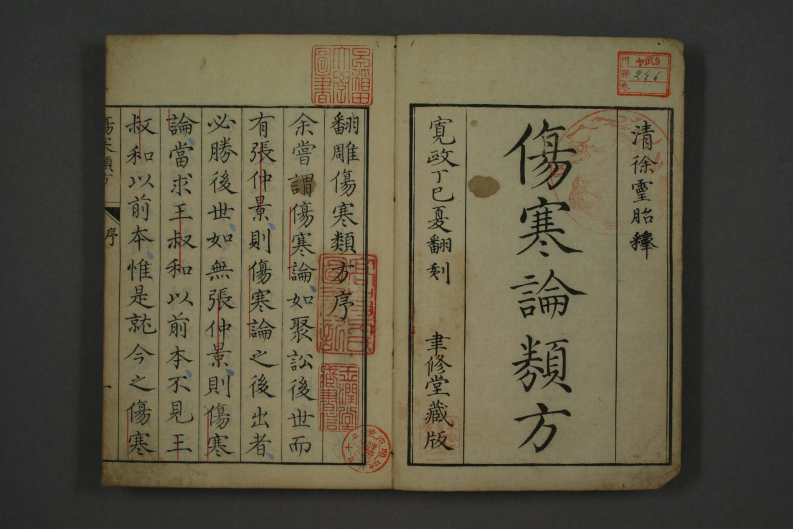 清徐靈胎釋
傷寒論類方
寬政丁巳夏翻刻　聿修堂藏版
翻雕傷寒類方序
余嘗謂傷寒論如聚訟後世而
有張仲景則傷寒論之後出者
必勝後世如無張仲景則傷寒
論當求王叔和以前本不見王
叔和以前本惟是就今之傷寒
傷寒類方
序
一